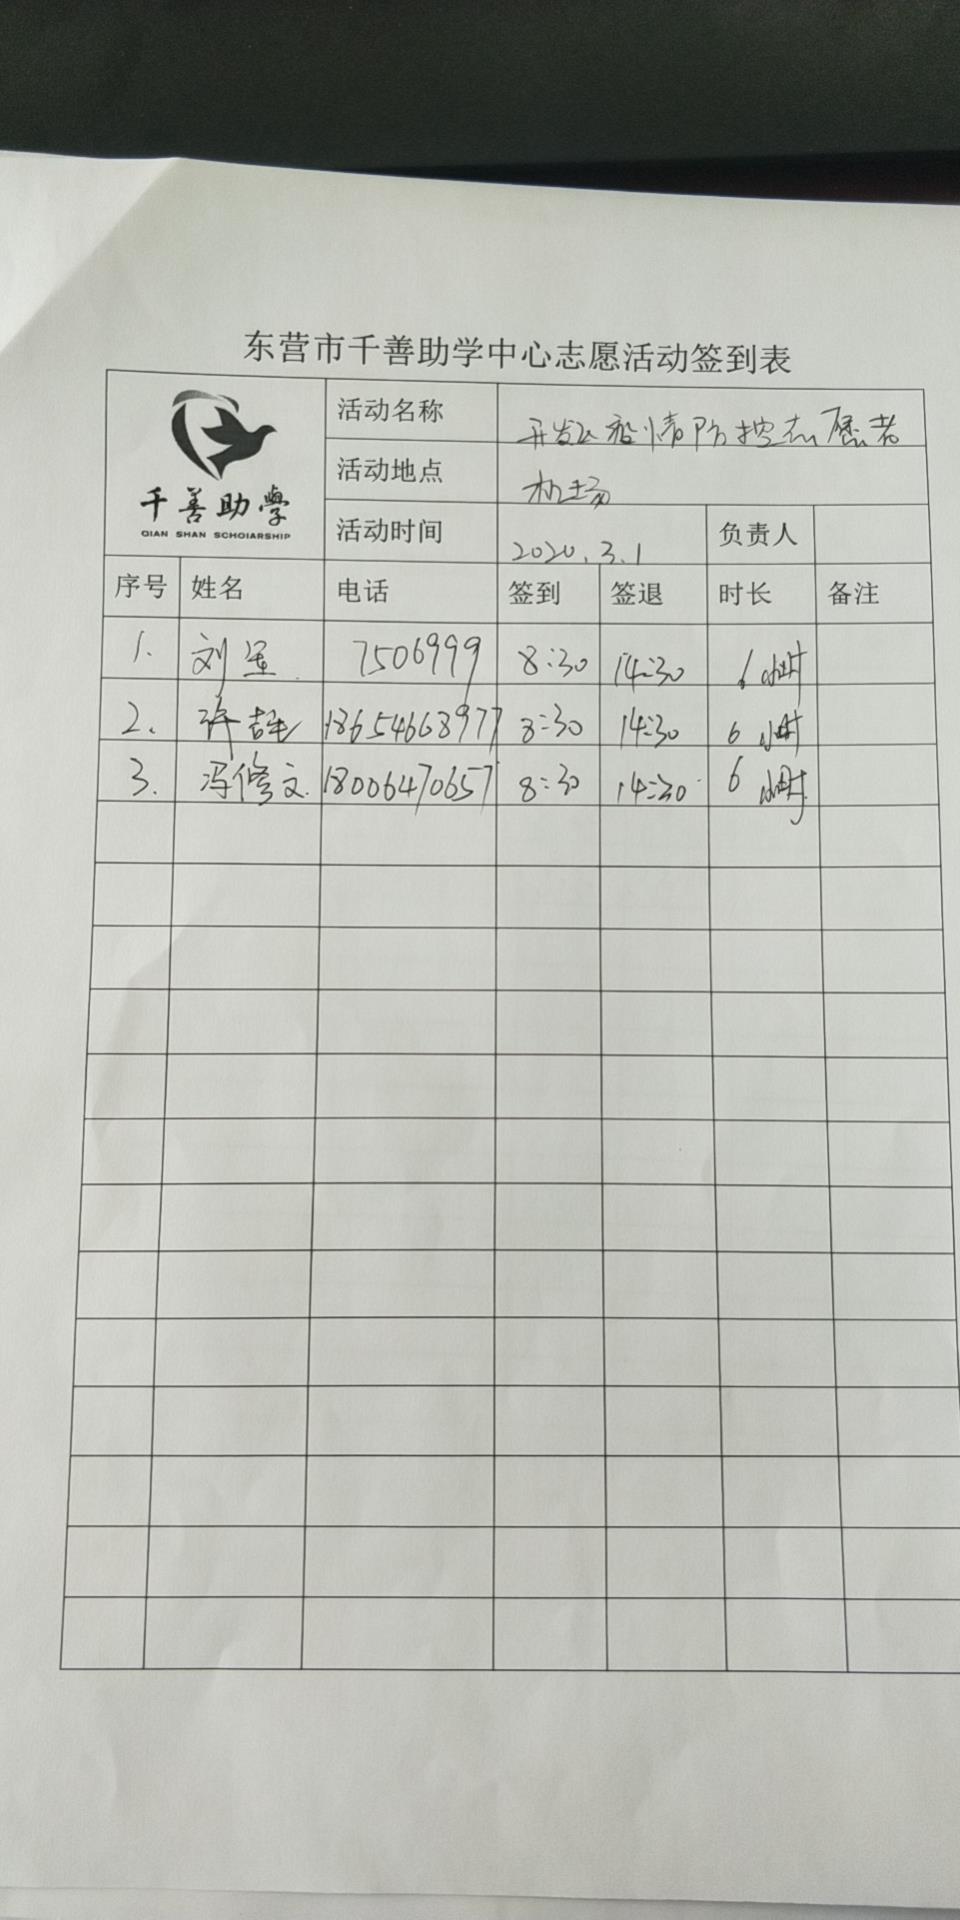 东营市千善助学中心志愿活动签到表
千善助學
QIAN SHAN SCHOIARSHIP
活动名称 开发区疫情防控志愿者
活动地点 机场
活动时间 2020.3.1 负责人
序号 姓名 电话 签到 签退 时长 备注
1. 刘 7506999 8:30 14:30 6小时
2. 许 18654668977 8:30 14:30 6小时
3. 冯修文 18006470657 8:30 14:30 6小时